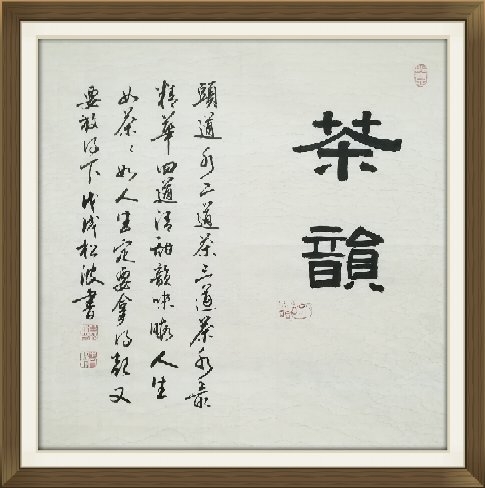 茶韻
頭道水二道茶三道茶水最
精華四道清甜韻味暇人生
如茶〻如人生定要拿得起又
要放得下戊戌松波書